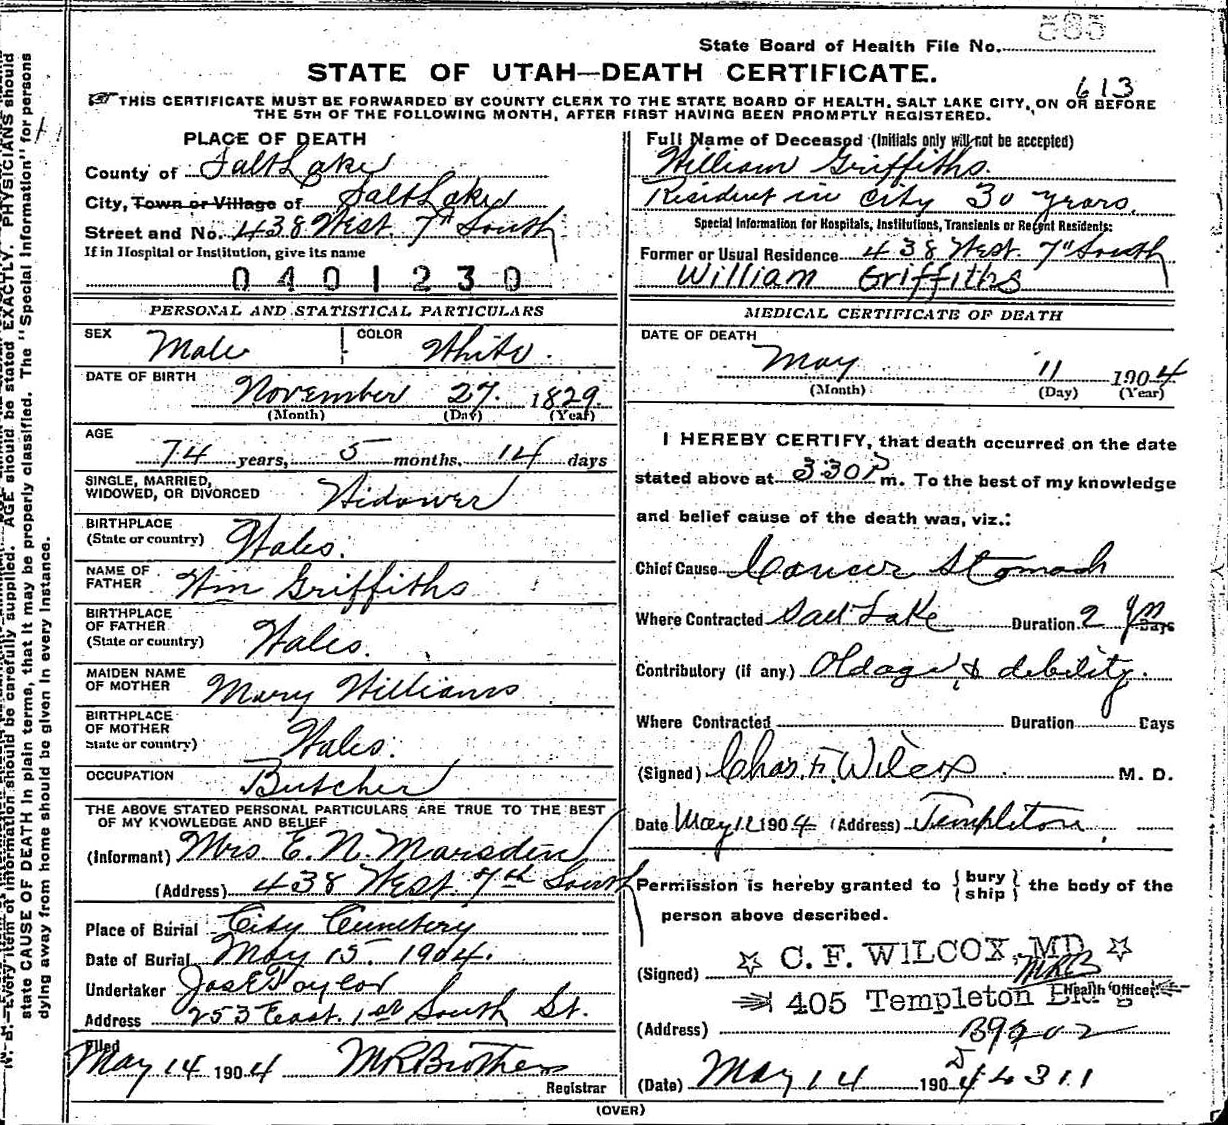 585
State Board of Health File No.
STATE OF UTAH—DEATH CERTIFICATE.
613
THIS CERTIFICATE MUST BE FORWARDED BY COUNTY CLERK TO THE STATE BOARD OF HEALTH, SALT LAKE CITY, ON OR BEFORE
THE 5TH OF THE FOLLOWING MONTH, AFTER FIRST HAVING BEEN PROMPTLY REGISTERED.
PLACE OF DEATH
County of Salt Lake
City, Town or Village of Salt Lake
Street and No. 438 West. 7th South
If in Hospital or Institution, give its name
0401230
PERSONAL AND STATISTICAL PARTICULARS
SEX Male COLOR White.
DATE OF BIRTH
November 27. 1829.
(Month) (Day) (Year)
AGE
74 years, 5 months, 14 days
SINGLE, MARRIED,
WIDOWED, OR DIVORCED Widower
BIRTHPLACE
(State or country) Wales.
NAME OF
FATHER Wm Griffiths
BIRTHPLACE
OF FATHER
(State or country) Wales.
MAIDEN NAME
OF MOTHER Mary Williams
BIRTHPLACE
OF MOTHER
State or country) Wales.
OCCUPATION Butcher
THE ABOVE STATED PERSONAL PARTICULARS ARE TRUE TO THE BEST
OF MY KNOWLEDGE AND BELIEF
(Informant) Mrs. E. N. Marsden
(Address) 438 West. 7th South
Place of Burial City Cemetery
Date of Burial May 15. 1904.
Undertaker Jos E Taylor
Address 253 East. 1st South St.
Filed
May 14 1904 M R Brothers
Registrar
Full Name of Deceased (Initials only will not be accepted)
William Griffiths.
Resident in City 30 years.
Special Information for Hospitals, Institutions, Transients or Recent Residents:
Former or Usual Residence 438 West. 7" South
William Griffiths
MEDICAL CERTIFICATE OF DEATH
DATE OF DEATH
May 11 1904
(Month) (Day) (Year)
I HEREBY CERTIFY, that death occurred on the date
stated above at 3 30 P m. To the best of my knowledge
and belief cause of the death was, viz.:
Chief Cause Cancer Stomach
Where Contracted Salt Lake Duration 2 Days
Contributory (if any) Oldage & debility.
Where Contracted Duration Days
(Signed) Chas. F. Wilcox M. D.
Date May 12 1904 (Address) Templeton
Permission is hereby granted to { bury
ship } the body of the
person above described.
(Signed) ☆ C. F. WILCOX, MD ☆
405 Templeton Bldg
Health Officer.
(Address) B9202
(Date) May 14 1904
J 44311
(OVER)
N. B.—Every item of information should be carefully supplied. AGE should be stated EXACTLY. PHYSICIANS should
state CAUSE OF DEATH in plain terms, that it may be properly classified. The "Special Information" for persons
dying away from home should be given in every instance.